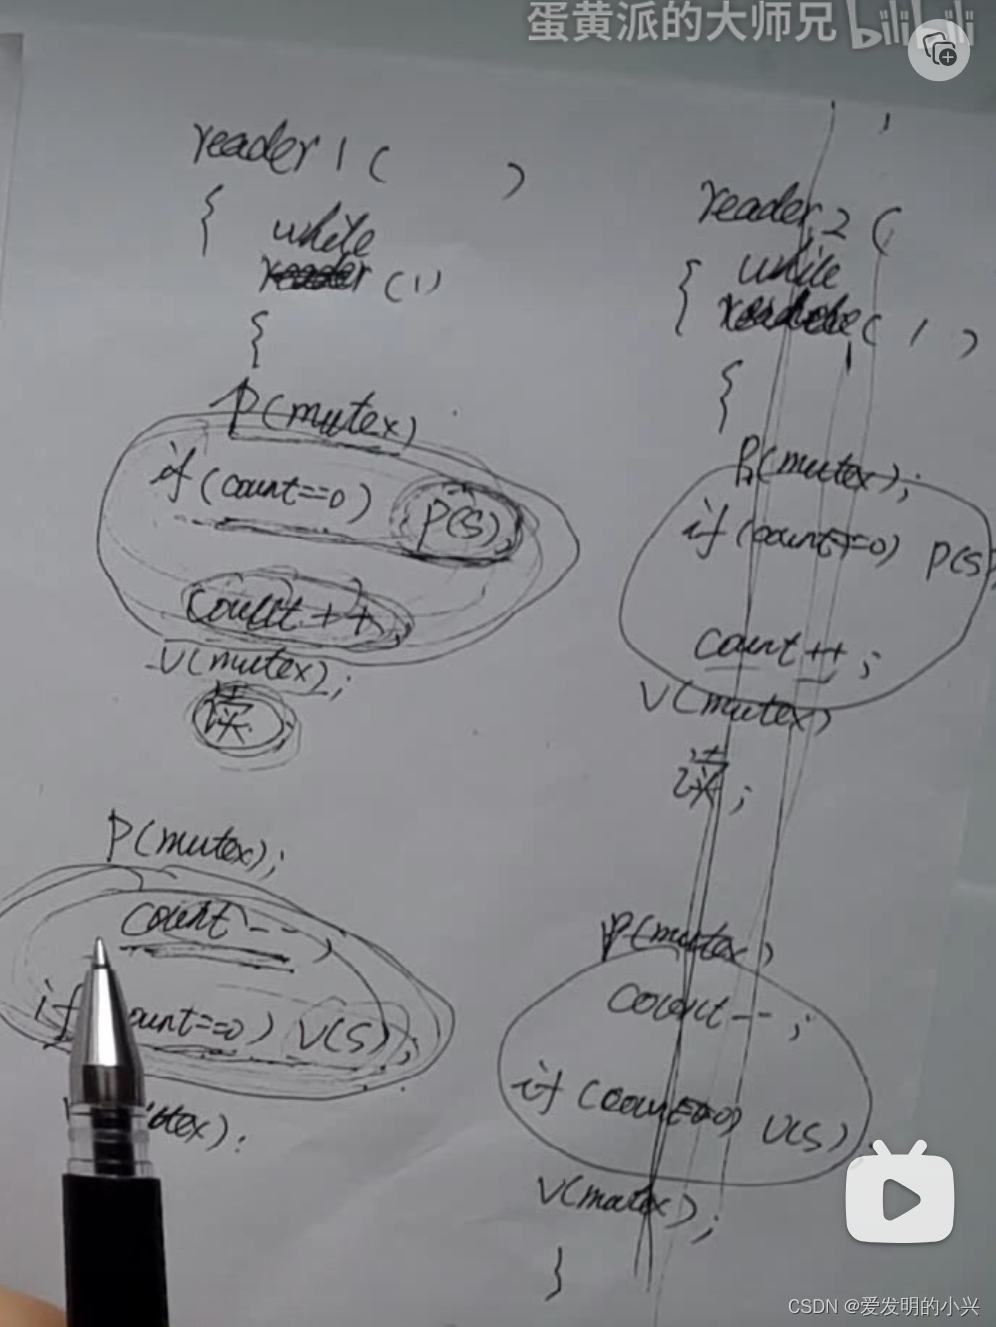 蛋黄派的大师兄 bilibili
reader 1 (          )
{ while
(1)
{
P(mutex)
if (count==0) P(S);
count++;
V(mutex);
读;
P(mutex);
count--;
if ount==0) V(S);
utex);
reader 2 (
{ while
( 1 )
{
P(mutex);
if (count==0) P(S)
count++;
V(mutex)
读;
P(mutex)
count--;
if (count==0) V(S).
V(mutex);
}
CSDN @爱发明的小兴